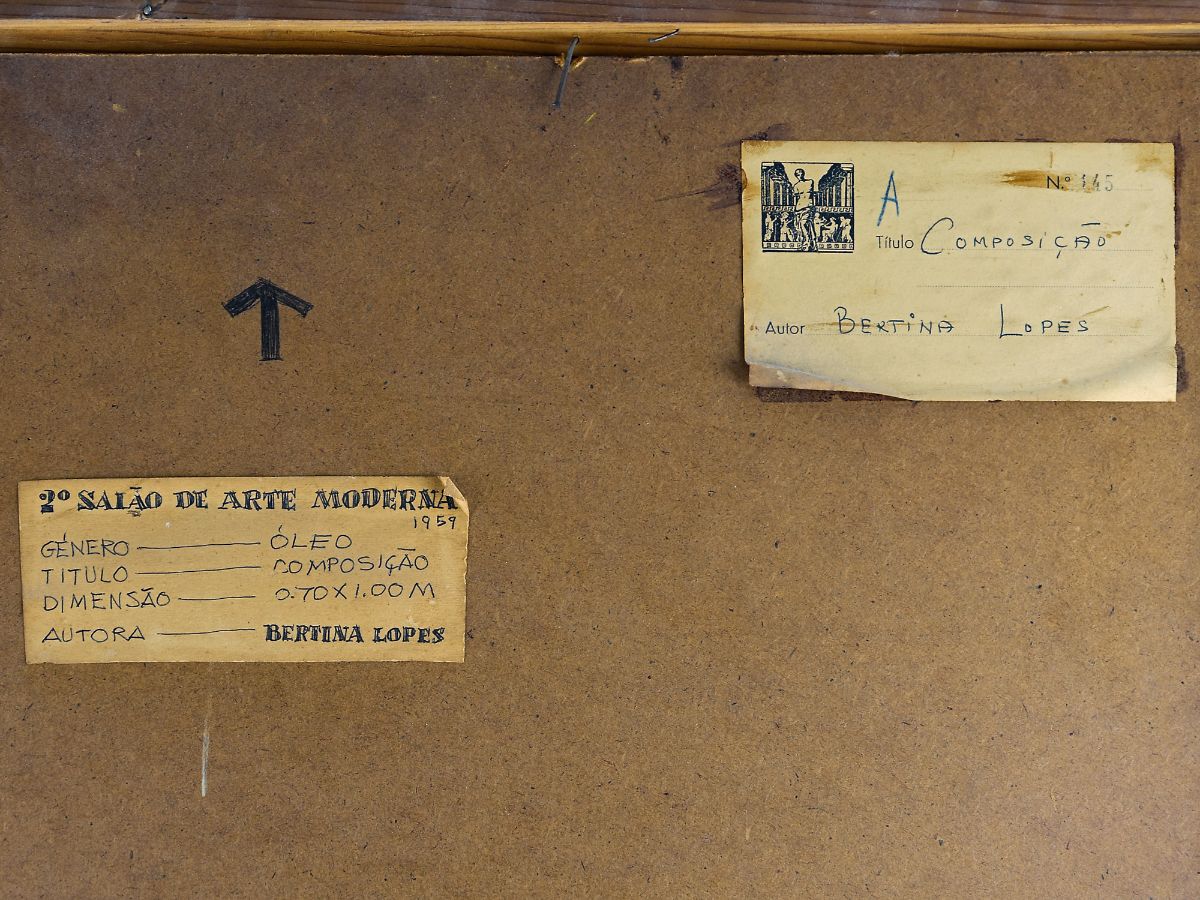 A Nº 145
Título COMPOSIÇÃO
Autor BERTINA LOPES
2º SALÃO DE ARTE MODERNA
1959
GÉNERO — ÓLEO
TITULO — COMPOSIÇÃO
DIMENSÃO — 0.70 X 1.00 M
AUTORA — BERTINA LOPES